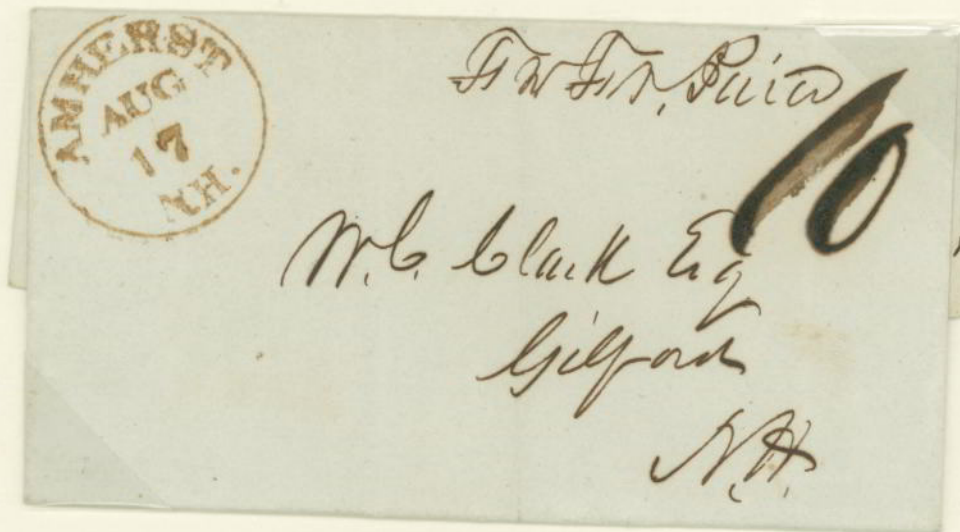 AMHERST
AUG
17
N.H.
Paid
10
W. C. Clark Esq
Gilford
N.H.